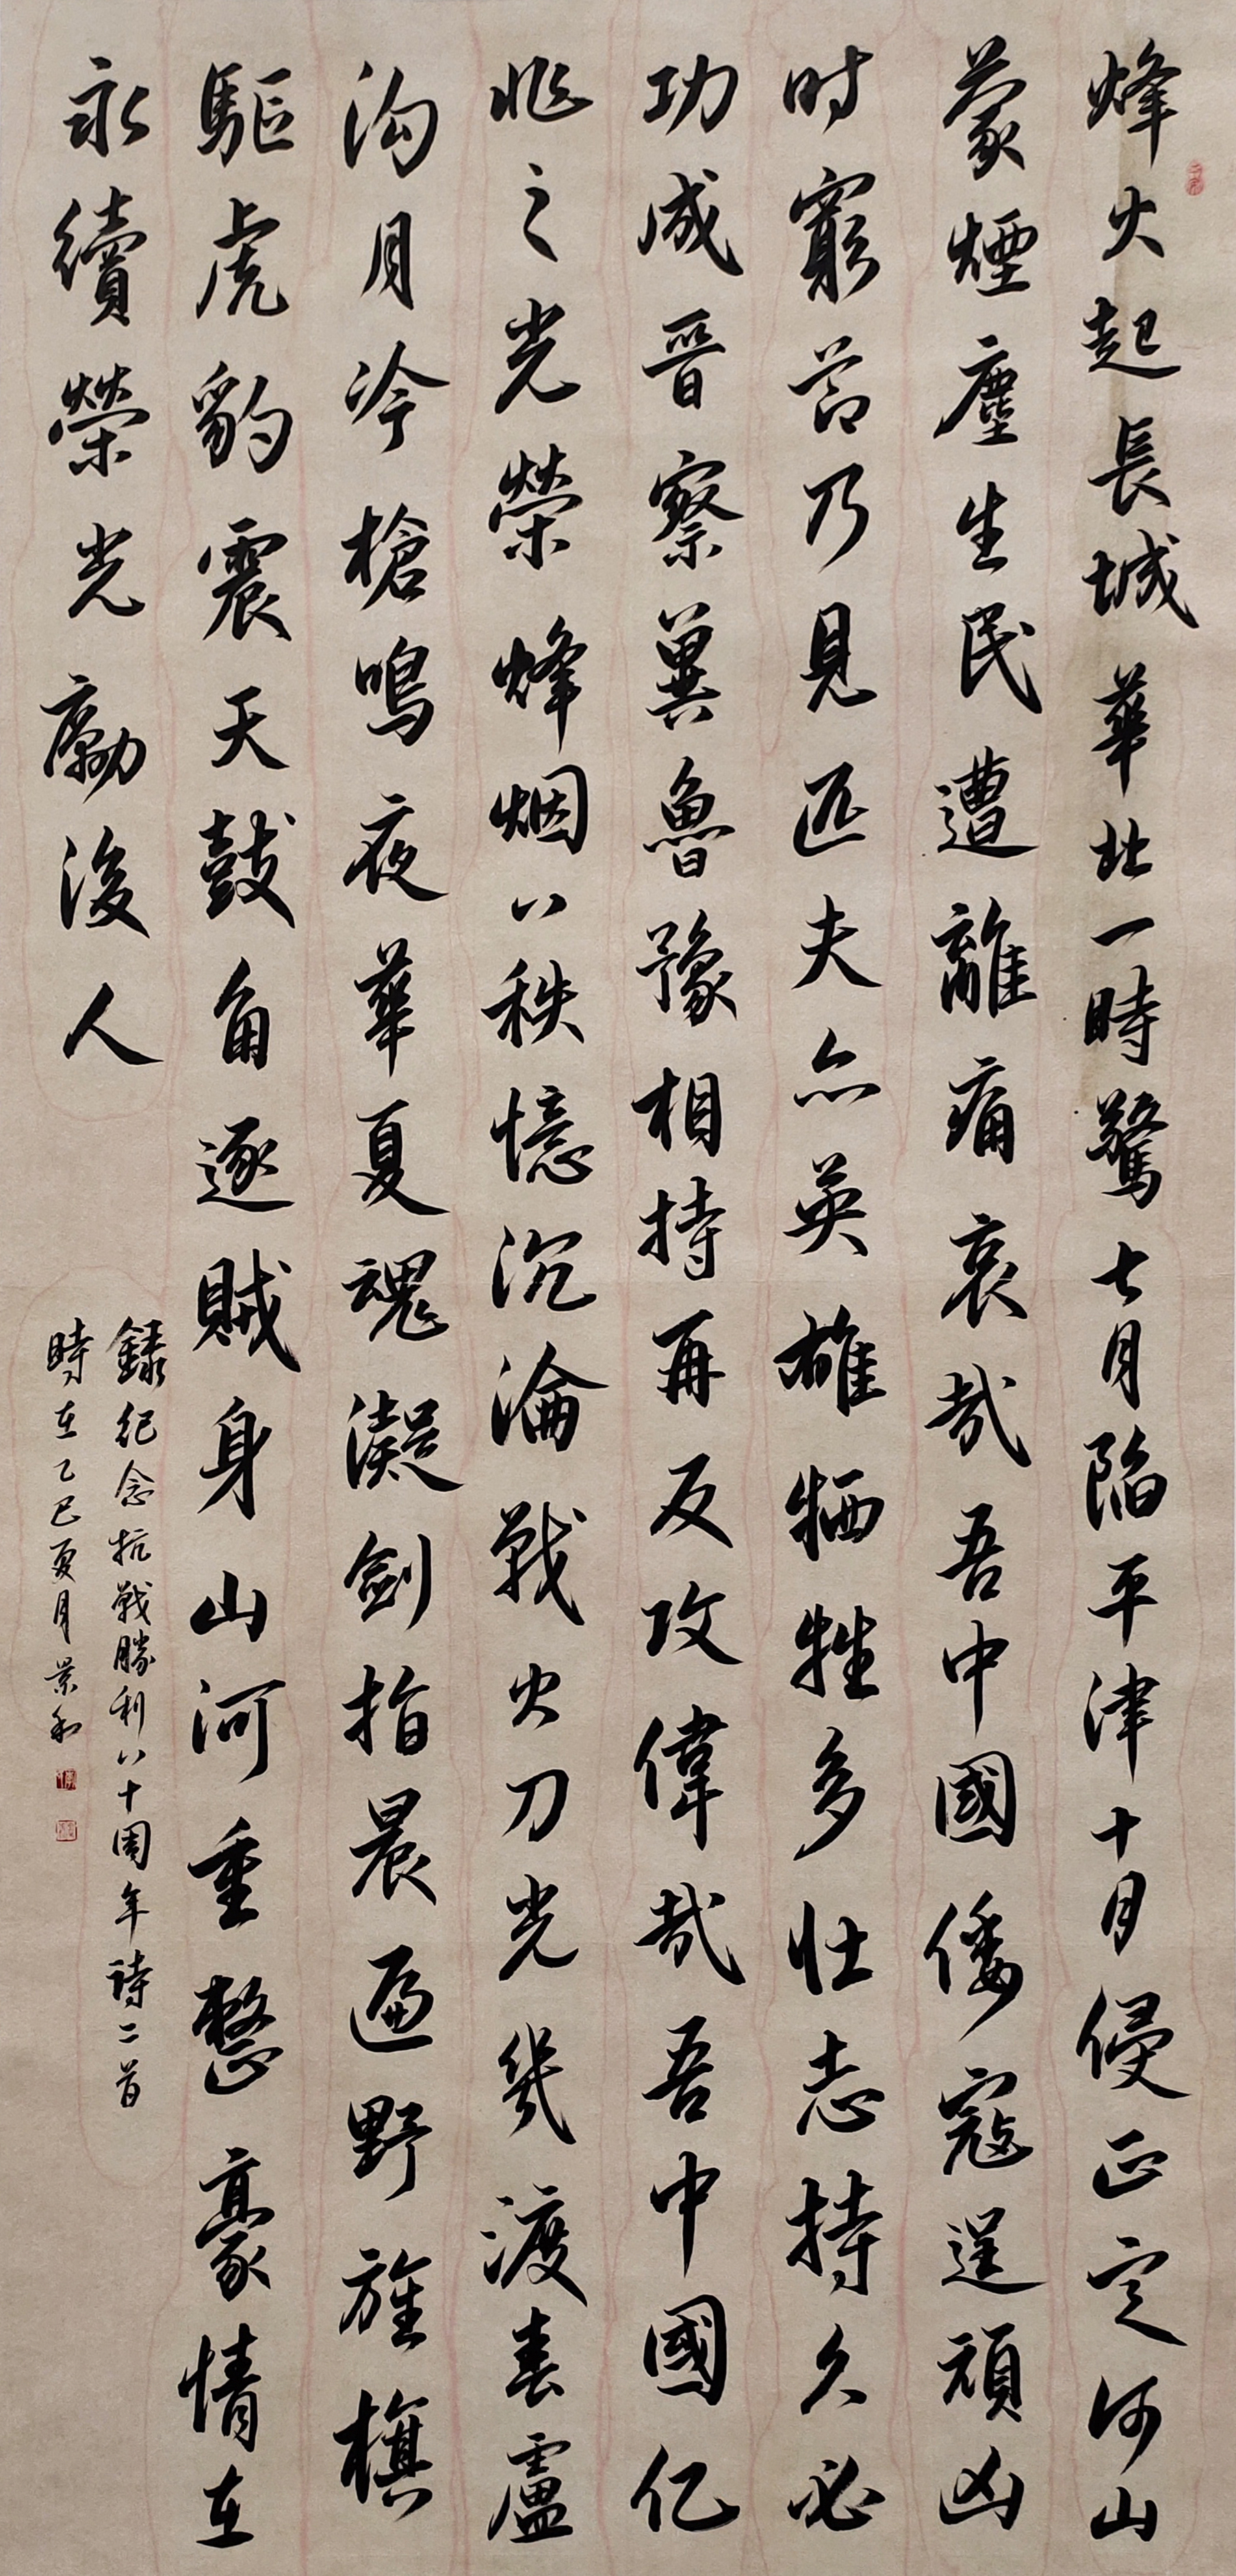 烽火起長城華北一時驚七月陷平津十月侵正定河山
蒙煙塵生民遭離痛哀哉吾中國倭寇逞頑凶
时窮节乃見匹夫亦英雄牺牲多壮志持久必
功成晋察冀魯豫相持再反攻偉哉吾中國亿
兆之光榮烽烟八秩憶沉淪戰火刀光幾渡春盧
沟月冷槍鳴夜華夏魂凝劍指晨遍野旌旗
驅虎豹震天鼓角逐賊身山河重整豪情在
永續榮光勵後人
錄纪念抗戰勝利八十周年詩二首
時在乙巳夏月景和